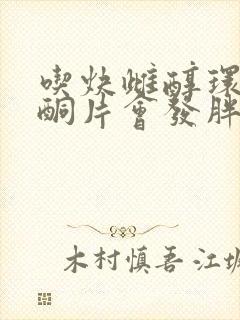 喫炔雌醇環
酮片會發胖
木村慎吾 江坂